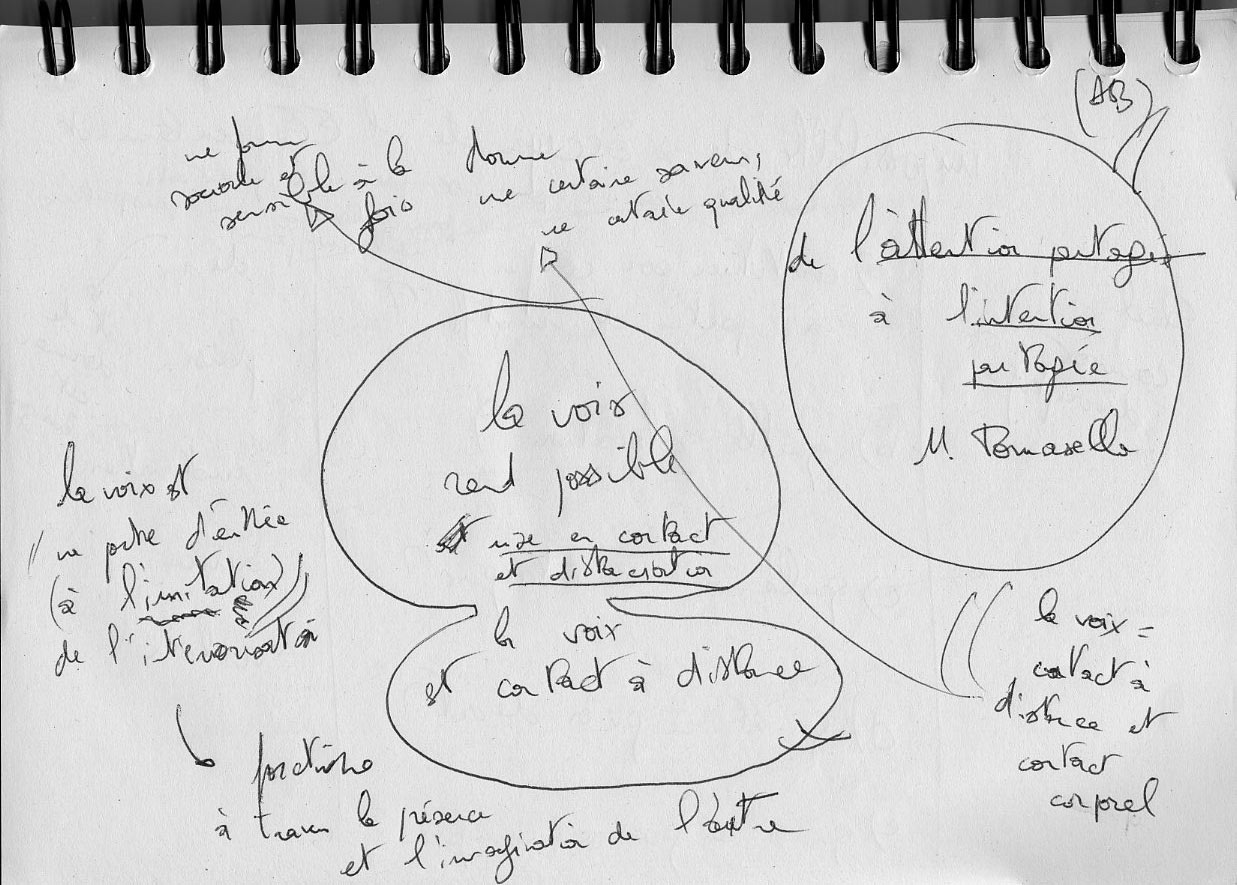 (AB)
une forme
sonore et
sensible à la
fois
donne
une certaine saveur,
une certaine qualité
de l'attention partagée
à l'intention
partagée
M. Tomasello
la voix
rend possible
mise en contact
et distanciation
la voix
est contact à distance
la voix est
une porte d'entrée
(à l'imitation)
de l'intériorisation
fonctionne
à travers la présence
et l'imagination de l'autre
la voix =
contact à
distance et
contact
corporel